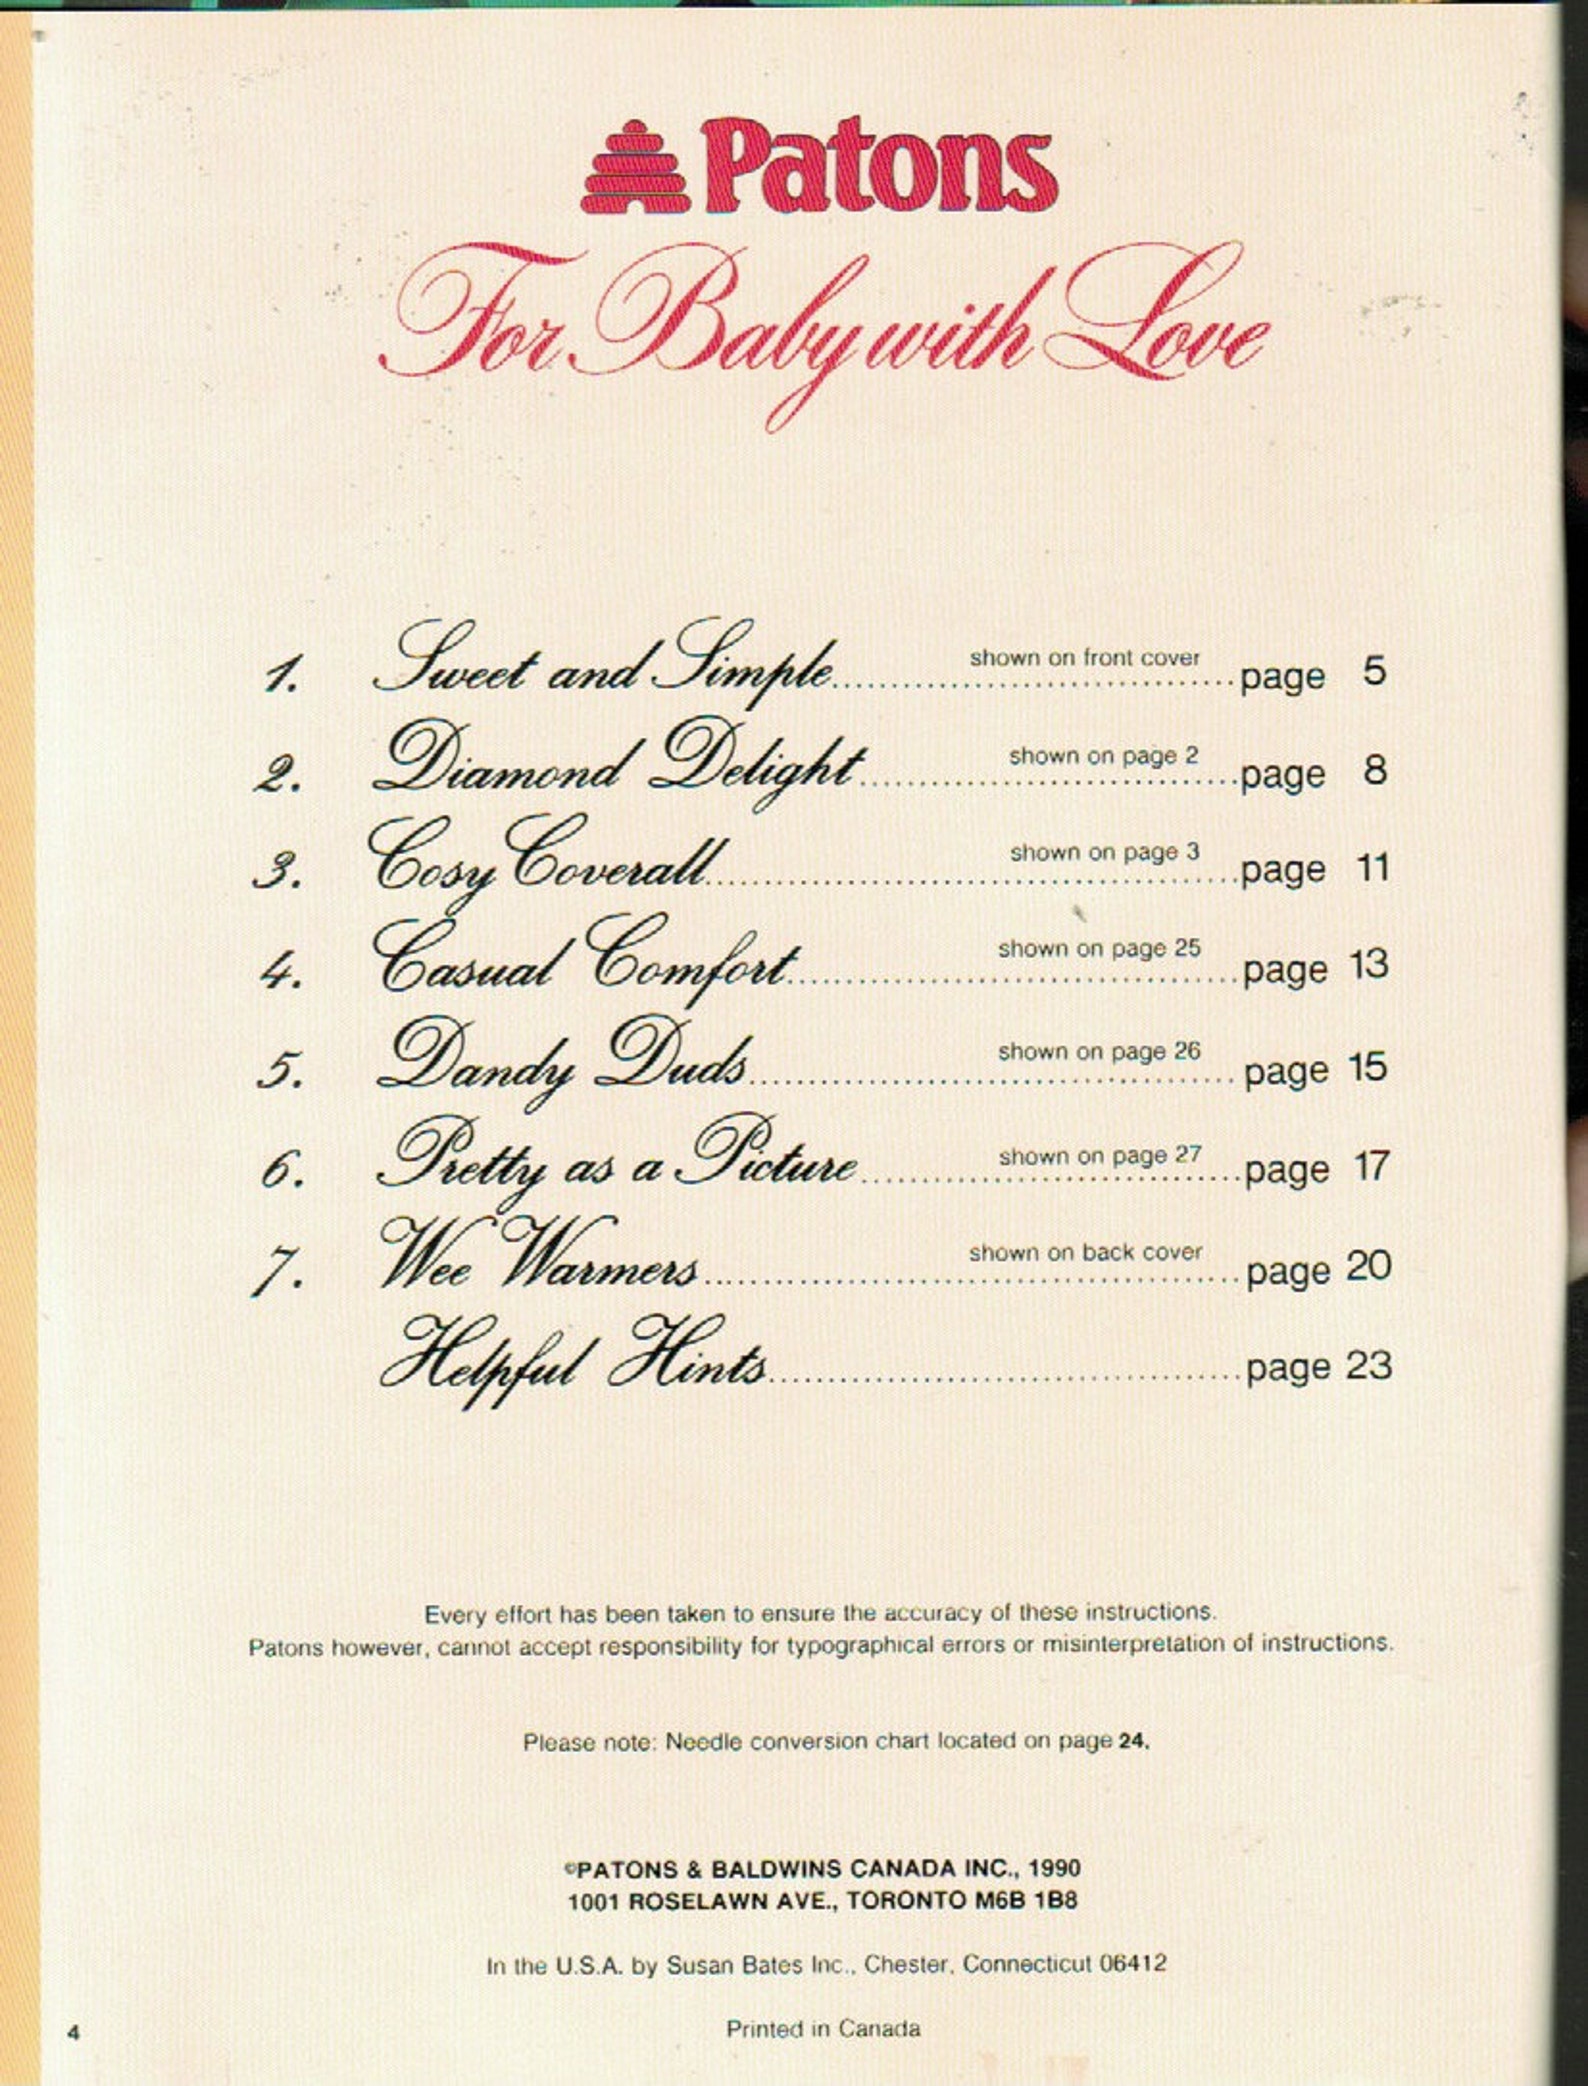 Patons
For Baby with Love
1. Sweet and Simple.......... shown on front cover ..........page 5
2. Diamond Delight.......... shown on page 2 ..........page 8
3. Cosy Coverall.......... shown on page 3 ..........page 11
4. Casual Comfort.......... shown on page 25 ..........page 13
5. Dandy Duds.......... shown on page 26 ..........page 15
6. Pretty as a Picture.......... shown on page 27 ..........page 17
7. Wee Warmers.......... shown on back cover ..........page 20
Helpful Hints..........page 23
Every effort has been taken to ensure the accuracy of these instructions.
Patons however, cannot accept responsibility for typographical errors or misinterpretation of instructions.
Please note: Needle conversion chart located on page 24.
©PATONS & BALDWINS CANADA INC., 1990
1001 ROSELAWN AVE., TORONTO M6B 1B8
In the U.S.A. by Susan Bates Inc., Chester, Connecticut 06412
Printed in Canada
4